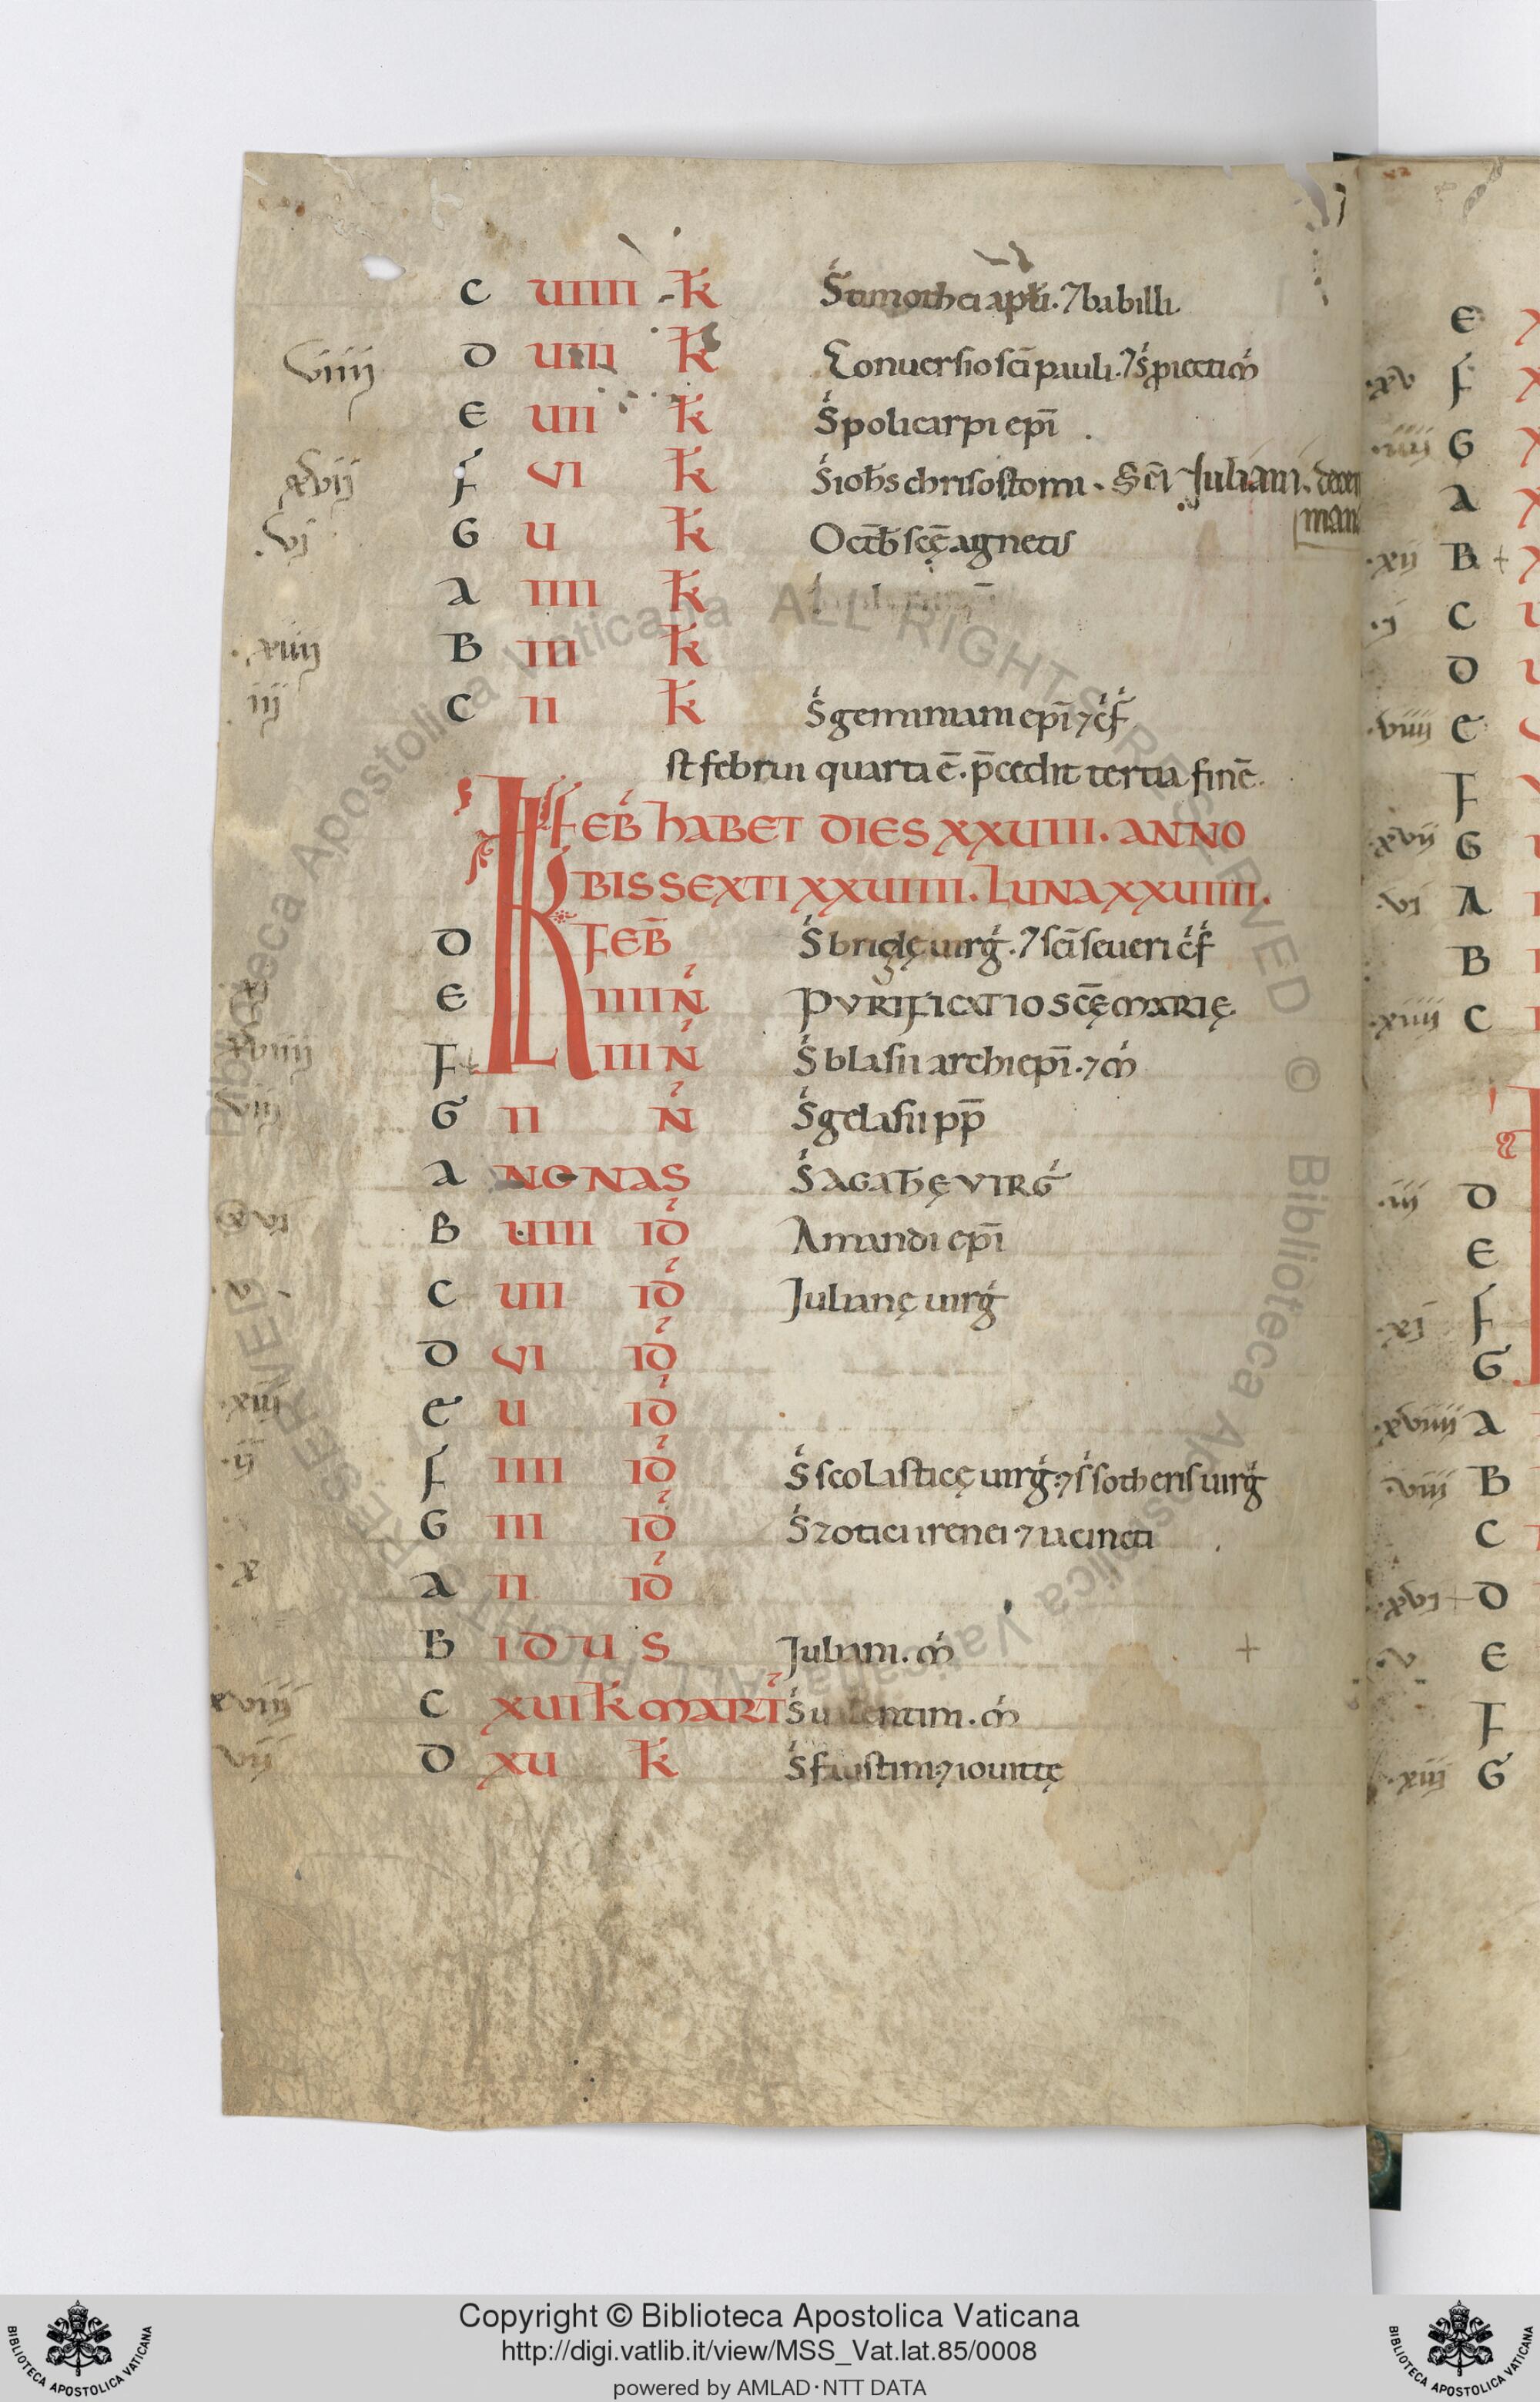 C UIIII k̄ Ś timothei apłi. ⁊ babilli.
viiij D UIII k̄ Conuersio sc̄i pauli. ⁊ Ś p̄iecti m̄
E UII k̄ Ś policarpi ep̄i
xvij F VI k̄ Ś ioh̄s chrisostomi. Sc̄i Juliani. decem
man
.vj G U k̄ Oct̄b sc̄ę agnetis
A IIII k̄
.xiiij B III k̄
iij C II k̄ Ś geminiani ep̄i ⁊ c̄f
st februi quarta ē. p̄cedit tertia finē.
FEB̄ HABET DIES XXUIII. ANNO
BISSEXTI XXUIIII. LUNA XXUIIII.
D K FEB̄ Ś brigidę uirḡ. ⁊ sc̄i seueri c̄f
E IIII N̄ PURIFICATIO SC̄Ę MARIĘ
F III N̄ Ś blasii archiep̄i. ⁊ m̄
G II N̄ Ś gelasii pp̄
A NONAS Ś AGATHĘ VIRḠ
xvi B UIII ID̄ Amandi ep̄i
C UII ID̄ Julianę uirḡ
D VI ID̄
.xiij E U ID̄
.ij F IIII ID̄ Ś scolasticę uirḡ. ⁊ Ś sotheris uirḡ
G III ID̄ Ś zotici irenei ⁊ iacincti
.x A II ID̄
B IDUS Juliani. m̄
xviij C XUI k̄ MART̄ Ś ualentini. m̄
vij D XU k̄ Ś faustini ⁊ iouittę
E
.xv F
.iiij G
A
.xij B
.j C
D
.viiij E
F
.xvij G
.vi A
B
.xiiij C
.iij D
E
.xj F
G
.xviiij A
.viij B
C
.xvi D
.v E
F
.xiij G
Copyright © Biblioteca Apostolica Vaticana
http://digi.vatlib.it/view/MSS_Vat.lat.85/0008
powered by AMLAD·NTT DATA
BIBLIOTECA APOSTOLICA VATICANA
BIBLIOTECA APOSTOLICA VATICANA